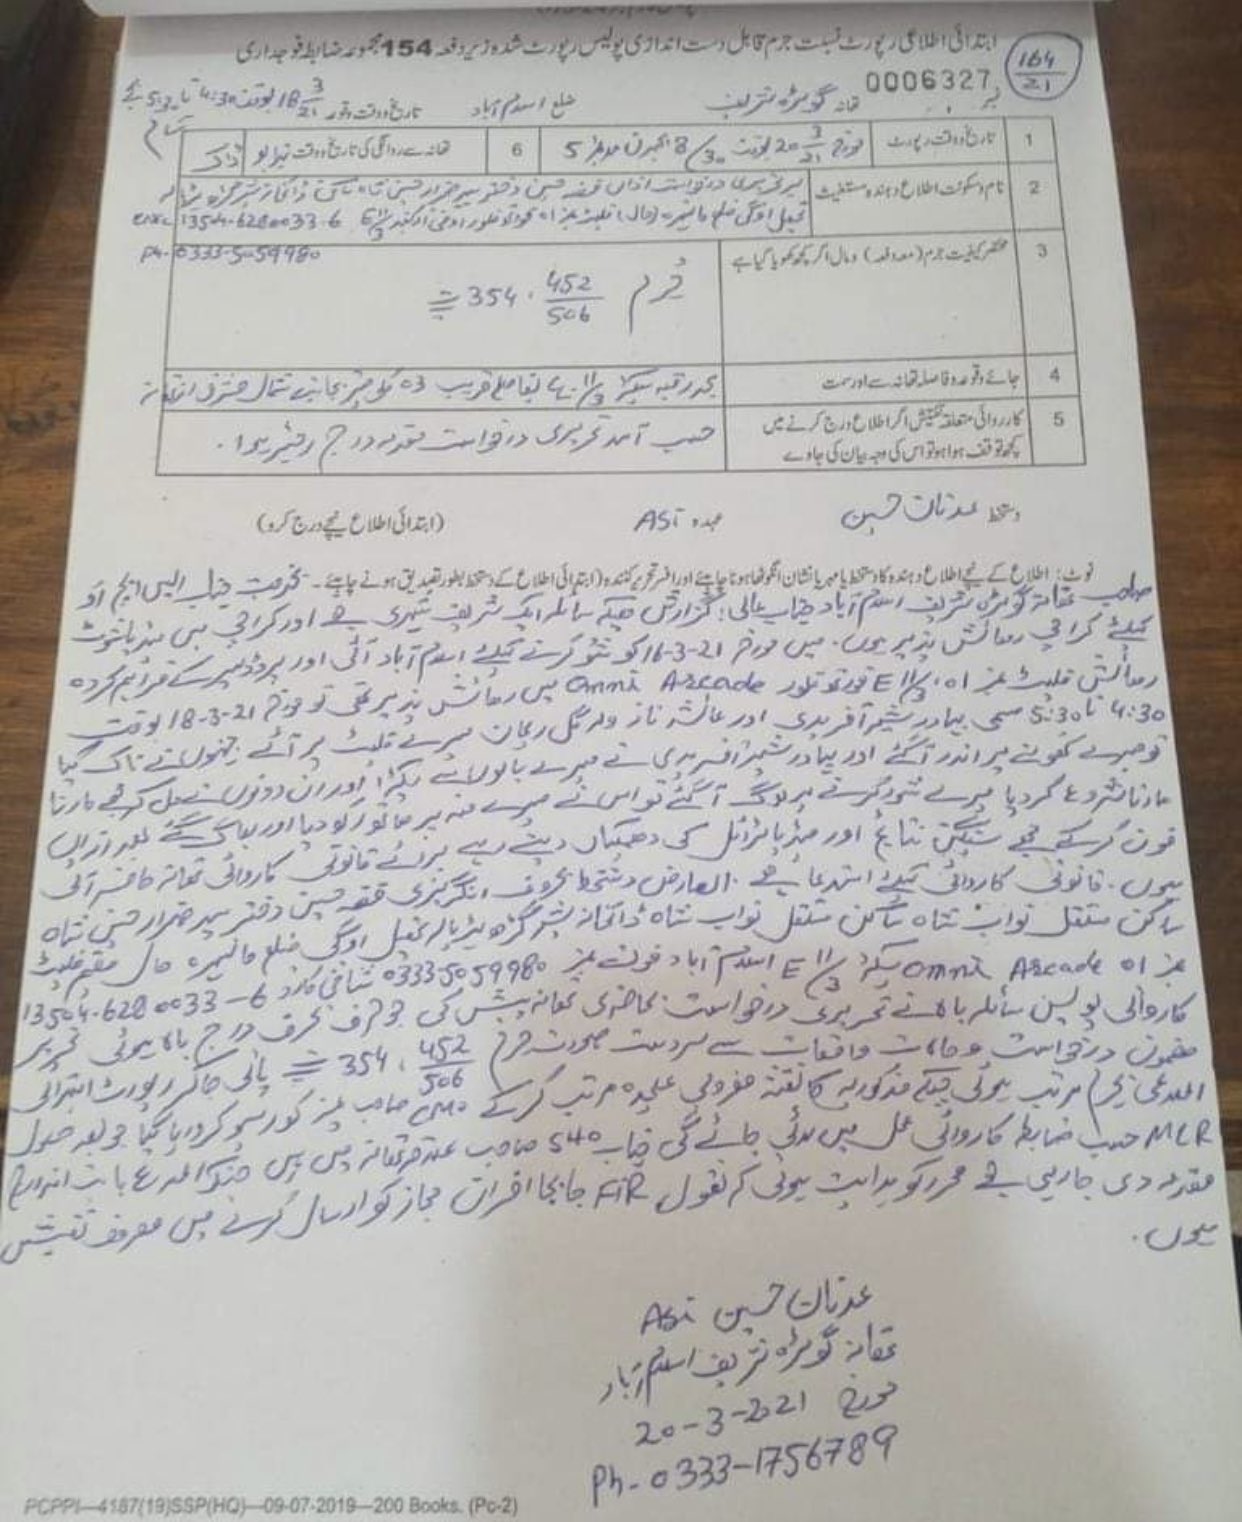 ابتدائی اطلاعی رپورٹ نسبت جرم قابل دست اندازی پولیس رپورٹ شدہ زیر دفعہ 154 مجموعہ ضابطہ فوجداری
164/21
نمبر 0006327
تھانہ گولڑہ شریف ضلع اسلام آباد تاریخ و وقت وقوعہ 18 3/21 بوقت 4:30 تا 5:30 بجے شام
1 تاریخ و وقت رپورٹ مورخہ 20 3/21 بوقت 8/30 5
6 تھانہ سے روانگی کی تاریخ و وقت ڈاک
2 نام و سکونت اطلاع دہندہ مستغیث تحریری درخواست ازاں
ضلع مانسہرہ (حال) فلیٹ E 11/3 cnic 13504-6280033-6
Ph-0333-5059980
3 مختصر کیفیت جرم (معہ دفعہ) و مال اگر کچھ کھویا گیا ہے
جرم 452/506 . 354 ت پ
4 جائے وقوعہ و فاصلہ تھانہ سے اور سمت 11/3 بفاصلہ قریب 03 کلومیٹر بجانب شمال مشرق از تھانہ
5 کارروائی متعلقہ تفتیش اگر اطلاع درج کرنے میں کچھ توقف ہوا ہو تو اس کی وجہ بیان کی جاوے
حسب آمد تحریری درخواست مقدمہ درج رجسٹر ہوا۔
دستخط عدنان حسین عہدہ ASI (ابتدائی اطلاع نیچے درج کرو)
نوٹ: اطلاع کے نیچے اطلاع دہندہ کا دستخط یا مہر یا نشان انگوٹھا ہونا چاہئے اور افسر تحریر کنندہ (ابتدائی اطلاع کے دستخط بطور تصدیق ہونے چاہئے۔ بخدمت جناب ایس ایچ او
صاحب تھانہ گولڑہ شریف اسلام آباد جناب عالی! گزارش ہیکہ سائلہ ایک شریف شہری ہے اور کراچی میں
کیلئے کراچی رہائش پذیر ہوں۔ میں مورخہ 16-3-21 کو شو کرنے کیلئے اسلام آباد آئی اور پروڈیوسر کے فراہم کردہ
رہائشی فلیٹ نمبر 01 E 11/3 فورتھ فلور Omni Arcade میں رہائش پذیر تھی تو مورخہ 18-3-21 بوقت
4:30 تا 5:30 مسمی بہادر شیر آفریدی اور عائشہ ناز ولد گل ریحان میرے فلیٹ پر آئے جنہوں نے ناک کیا
تو میرے کھولنے پر اندر آ گئے اور بہادر شیر آفریدی نے میرے بالوں سے پکڑا اور ان دونوں نے مل کر مجھے مارنا
مارنا شروع کر دیا میرے شور کرنے پر لوگ آ گئے تو اس نے میرے منہ پر ہاتھ رکھ دیا اور بھاگ گئے
فون کر کے مجھے سنگین نتائج اور میڈیا ٹرائل کی دھمکیاں دیتے رہے برائے قانونی کاروائی تھانہ حاضر آئی
ہوں۔ قانونی کاروائی کیلئے استدعا ہے۔ العارض دستخط بحروف انگریزی دختر سید ضرار حسین شاہ
ساکن مستقل نواب شاہ ساکن مستقل نواب شاہ ڈاکخانہ شیر گڑھ تحصیل اوگی ضلع مانسہرہ حال مقیم فلیٹ
نمبر 01 Omni Arcade سیکٹر E 11/3 اسلام آباد فون نمبر 0333-5059980 شناختی کارڈ 13504-6280033-6
کاروائی پولیس سائلہ بالا نے تحریری درخواست بحاضری تھانہ پیش کی جو حرف بحرف درج بالا ہوئی تحریر
مضمون درخواست و حالات واقعات سے سردست صورت جرم 452/506 . 354 ت پ پائی جا کر رپورٹ ابتدائی
اطلاعی مرتب ہوئی جبکہ مذکوریہ کا نقشہ مضروبی علیحدہ مرتب کر کے CMO صاحب پمز کو ریسر کر دیا گیا جو بعد حصول
MLR حسب ضابطہ کاروائی عمل میں لائی جائے گی جناب SHO صاحب
مقدمہ دی جا رہی ہے محرر کو ہدایت ہوئی کہ نقول FIR جابجا افسران مجاز کو ارسال کرے میں مصروف تفتیش
ہوں۔
عدنان حسین ASI
تھانہ گولڑہ شریف اسلام آباد
مورخہ 20-3-2021
Ph-0333-1756789
PCPPI—4187(19)SSP(HQ)—09-07-2019—200 Books. (Pc-2)